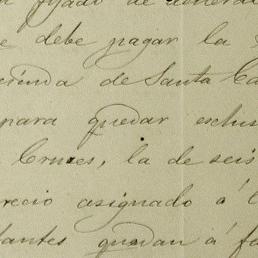 fijado de
e debe pagar la
cienda de Santa Ca
para quedar exclus
Cruces, la de seis
recio asignado á l
tantes quedan á fa